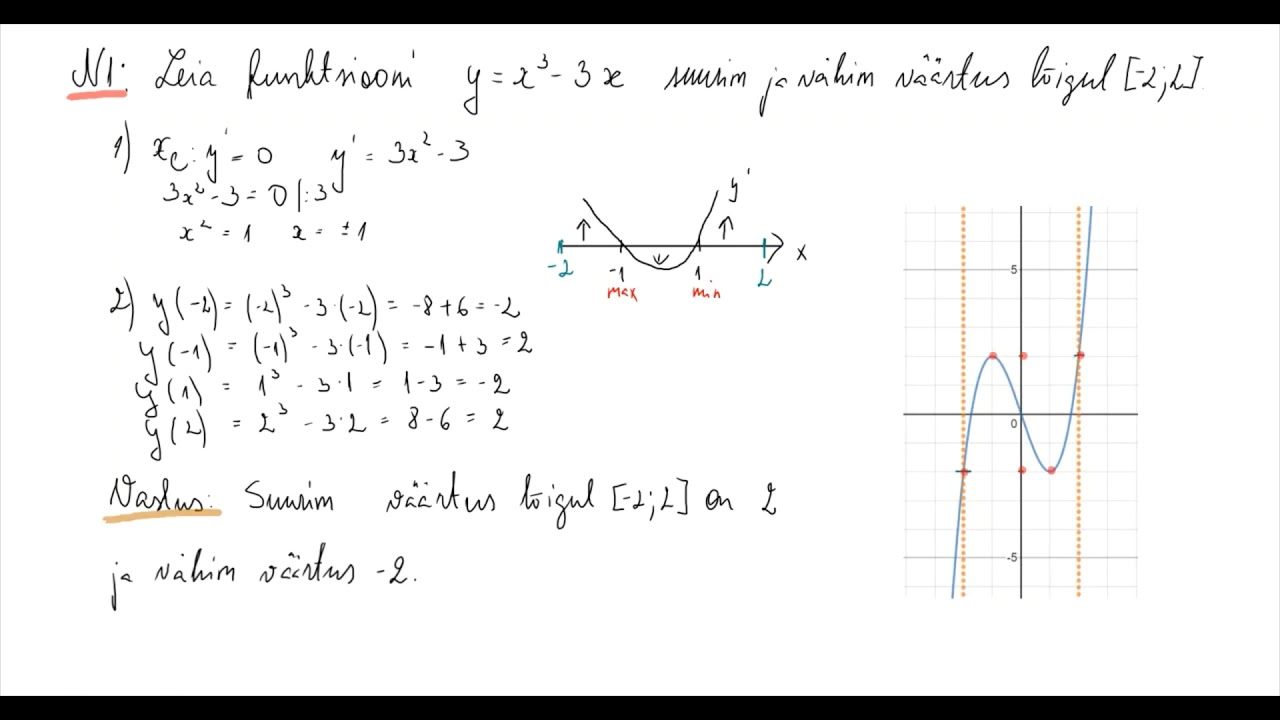 N1: Leia funktsiooni y = x³ - 3x suurim ja vähim väärtus lõigul [-2; 2].
1) x_e: y' = 0 y' = 3x² - 3
3x² - 3 = 0 |:3
x² = 1 x = ±1
y'
x
-2 -1 1 2
max min
2) y(-2) = (-2)³ - 3·(-2) = -8 + 6 = -2
y(-1) = (-1)³ - 3·(-1) = -1 + 3 = 2
y(1) = 1³ - 3·1 = 1 - 3 = -2
y(2) = 2³ - 3·2 = 8 - 6 = 2
Vastus: Suurim väärtus lõigul [-2; 2] on 2
ja vähim väärtus -2.
5
0
-5